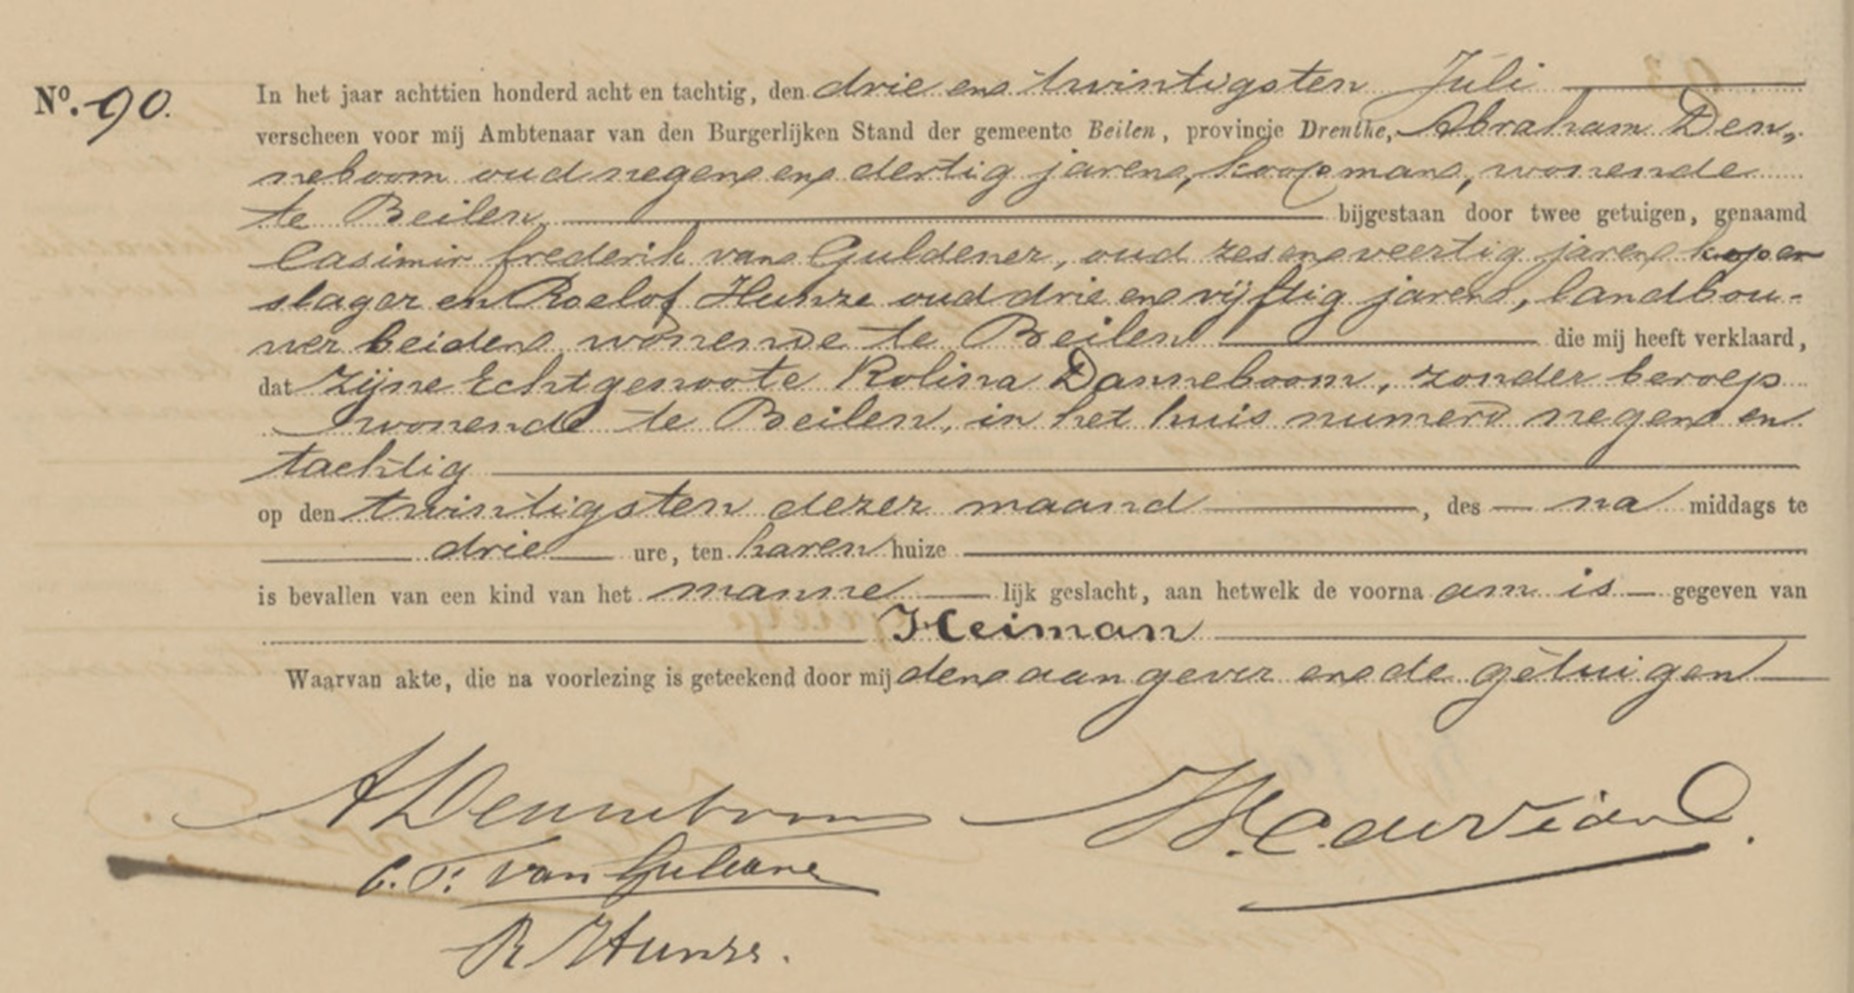 No. 90. In het jaar achttien honderd acht en tachtig, den drie en twintigsten Juli
verscheen voor mij Ambtenaar van den Burgerlijken Stand der gemeente Beilen, provincie Drenthe, Abraham Den„
neboom oud negen en dertig jaren, koopman, wonende
te Beilen bijgestaan door twee getuigen, genaamd
Casimir frederik van Guldener, oud zes en veertig jaren koper
slager en Roelof Hunze oud drie en vijftig jaren, landbou-
wer beiden wonende te Beilen die mij heeft verklaard,
dat zijne Echtgenoote Rolina Danneboom, zonder beroep
wonende te Beilen, in het huis numero negen en
tachtig
op den twintigsten dezer maand, des na middags te
drie ure, ten haren huize
is bevallen van een kind van het manne lijk geslacht, aan hetwelk de voorna am is gegeven van
Heiman
Waarvan akte, die na voorlezing is geteekend door mij den aangever en de getuigen
A Denneboom
C. F. van Guldene
R Hunze.